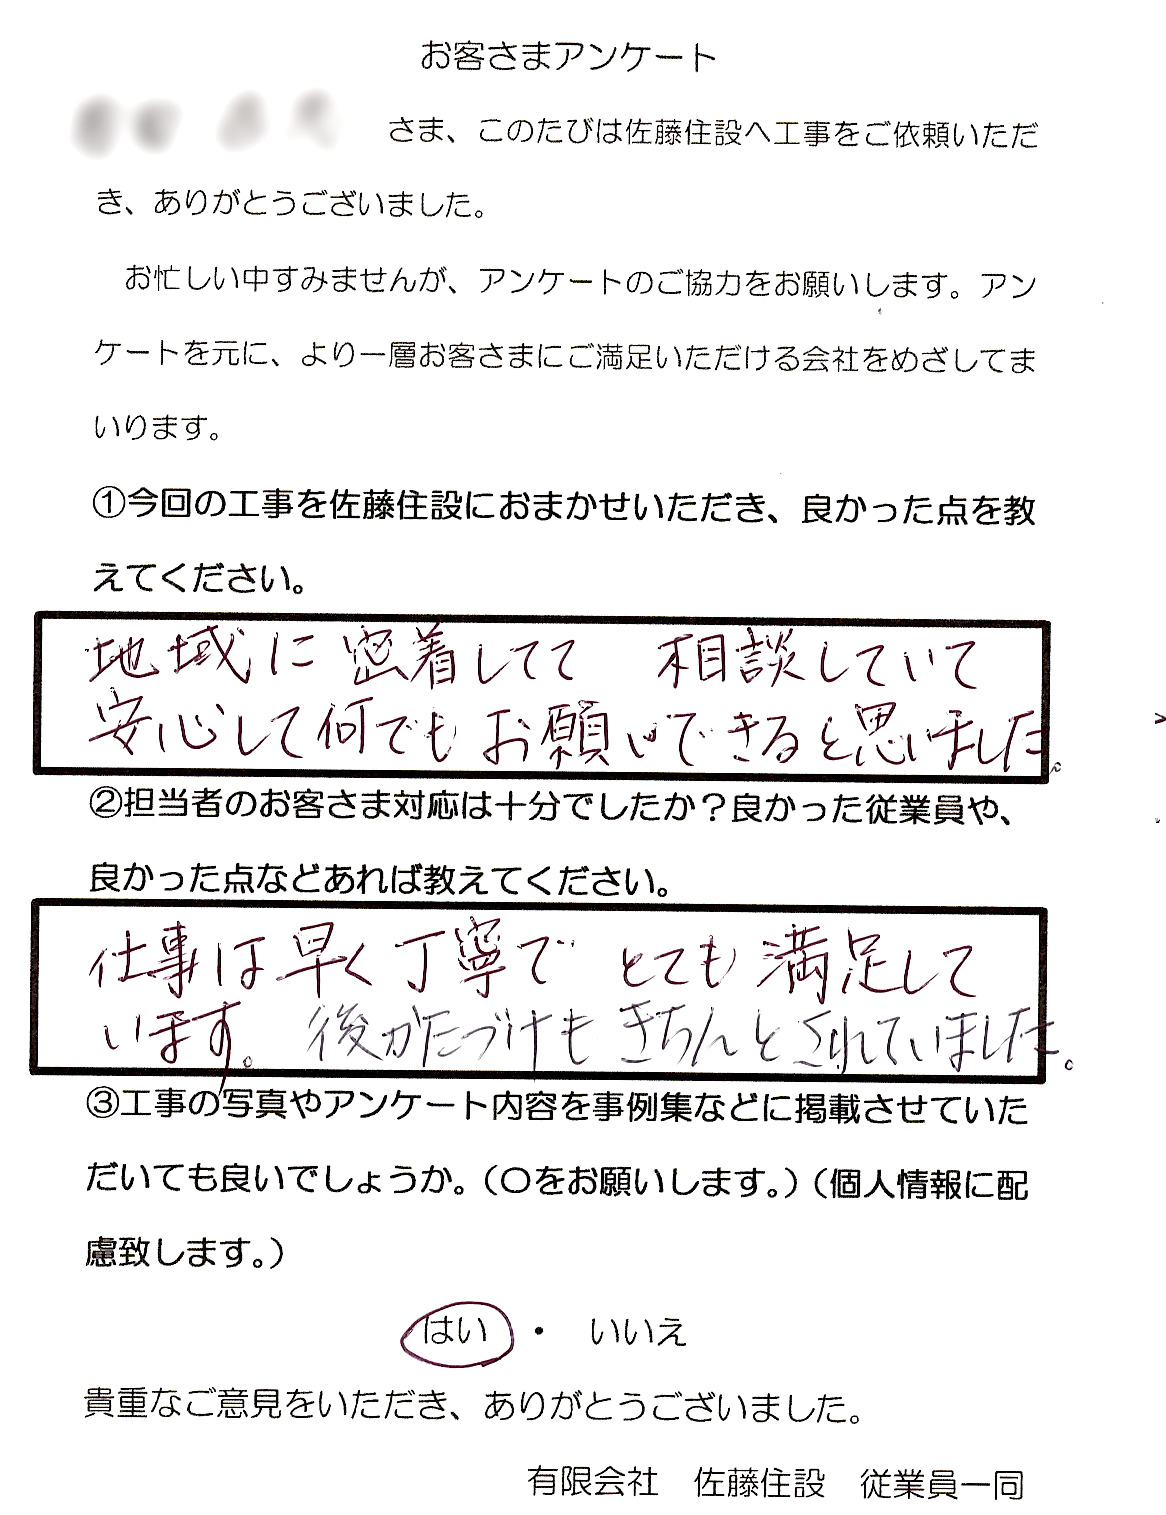 お客さまアンケート
さま、このたびは佐藤住設へ工事をご依頼いただ
き、ありがとうございました。
お忙しい中すみませんが、アンケートのご協力をお願いします。アン
ケートを元に、より一層お客さまにご満足いただける会社をめざしてま
いります。
①今回の工事を佐藤住設におまかせいただき、良かった点を教
えてください。
地域に密着してて 相談していて
安心して何でもお願いできると思いました。
②担当者のお客さま対応は十分でしたか？良かった従業員や、
良かった点などあれば教えてください。
仕事は早く丁寧で とても満足して
います。後かたづけもきちんとされていました。
③工事の写真やアンケート内容を事例集などに掲載させていた
だいても良いでしょうか。（〇をお願いします。）（個人情報に配
慮致します。）
はい ・ いいえ
貴重なご意見をいただき、ありがとうございました。
有限会社 佐藤住設 従業員一同